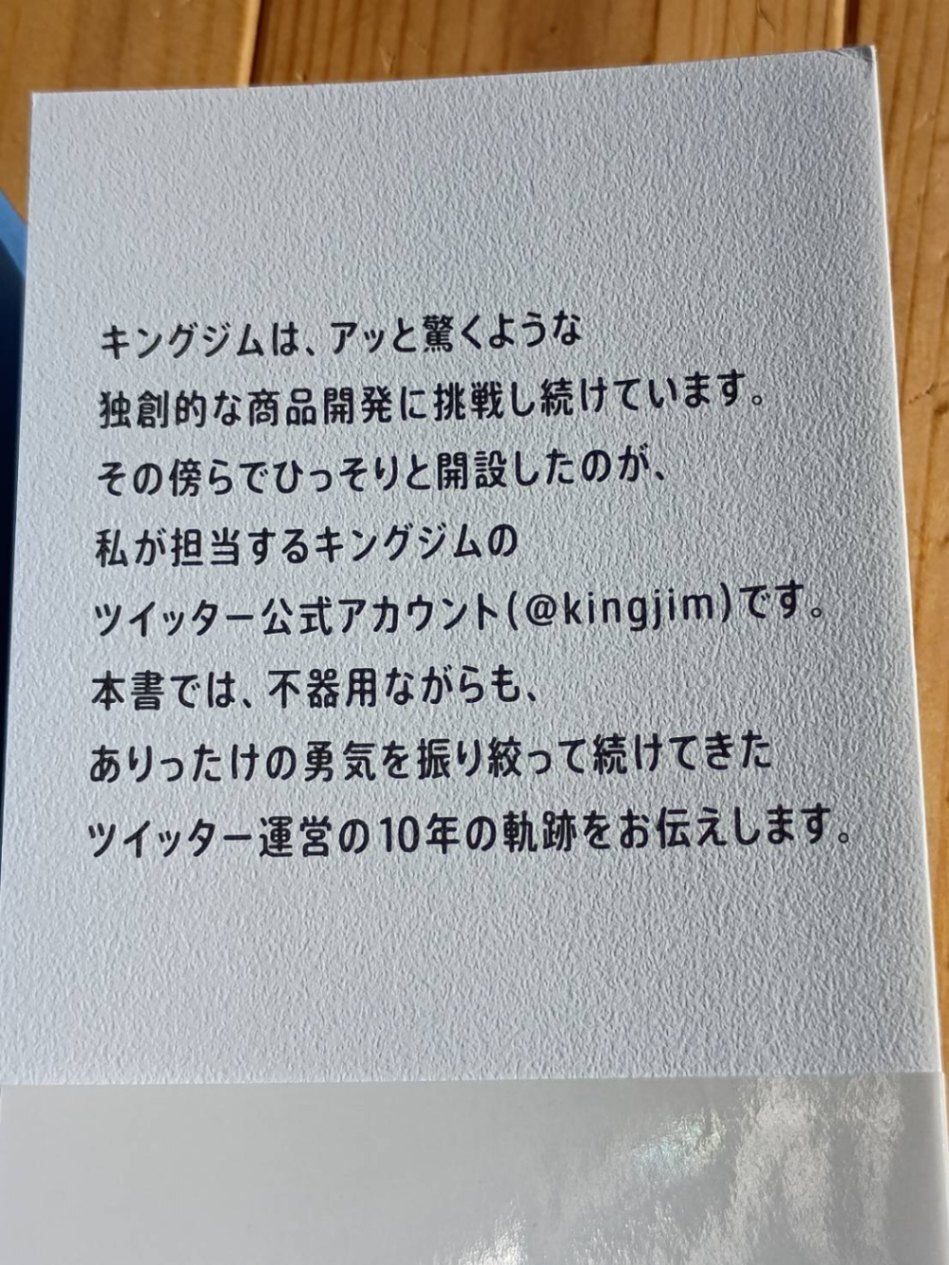 キングジムは、アッと驚くような
独創的な商品開発に挑戦し続けています。
その傍らでひっそりと開設したのが、
私が担当するキングジムの
ツイッター公式アカウント(@kingjim)です。
本書では、不器用ながらも、
ありったけの勇気を振り絞って続けてきた
ツイッター運営の10年の軌跡をお伝えします。